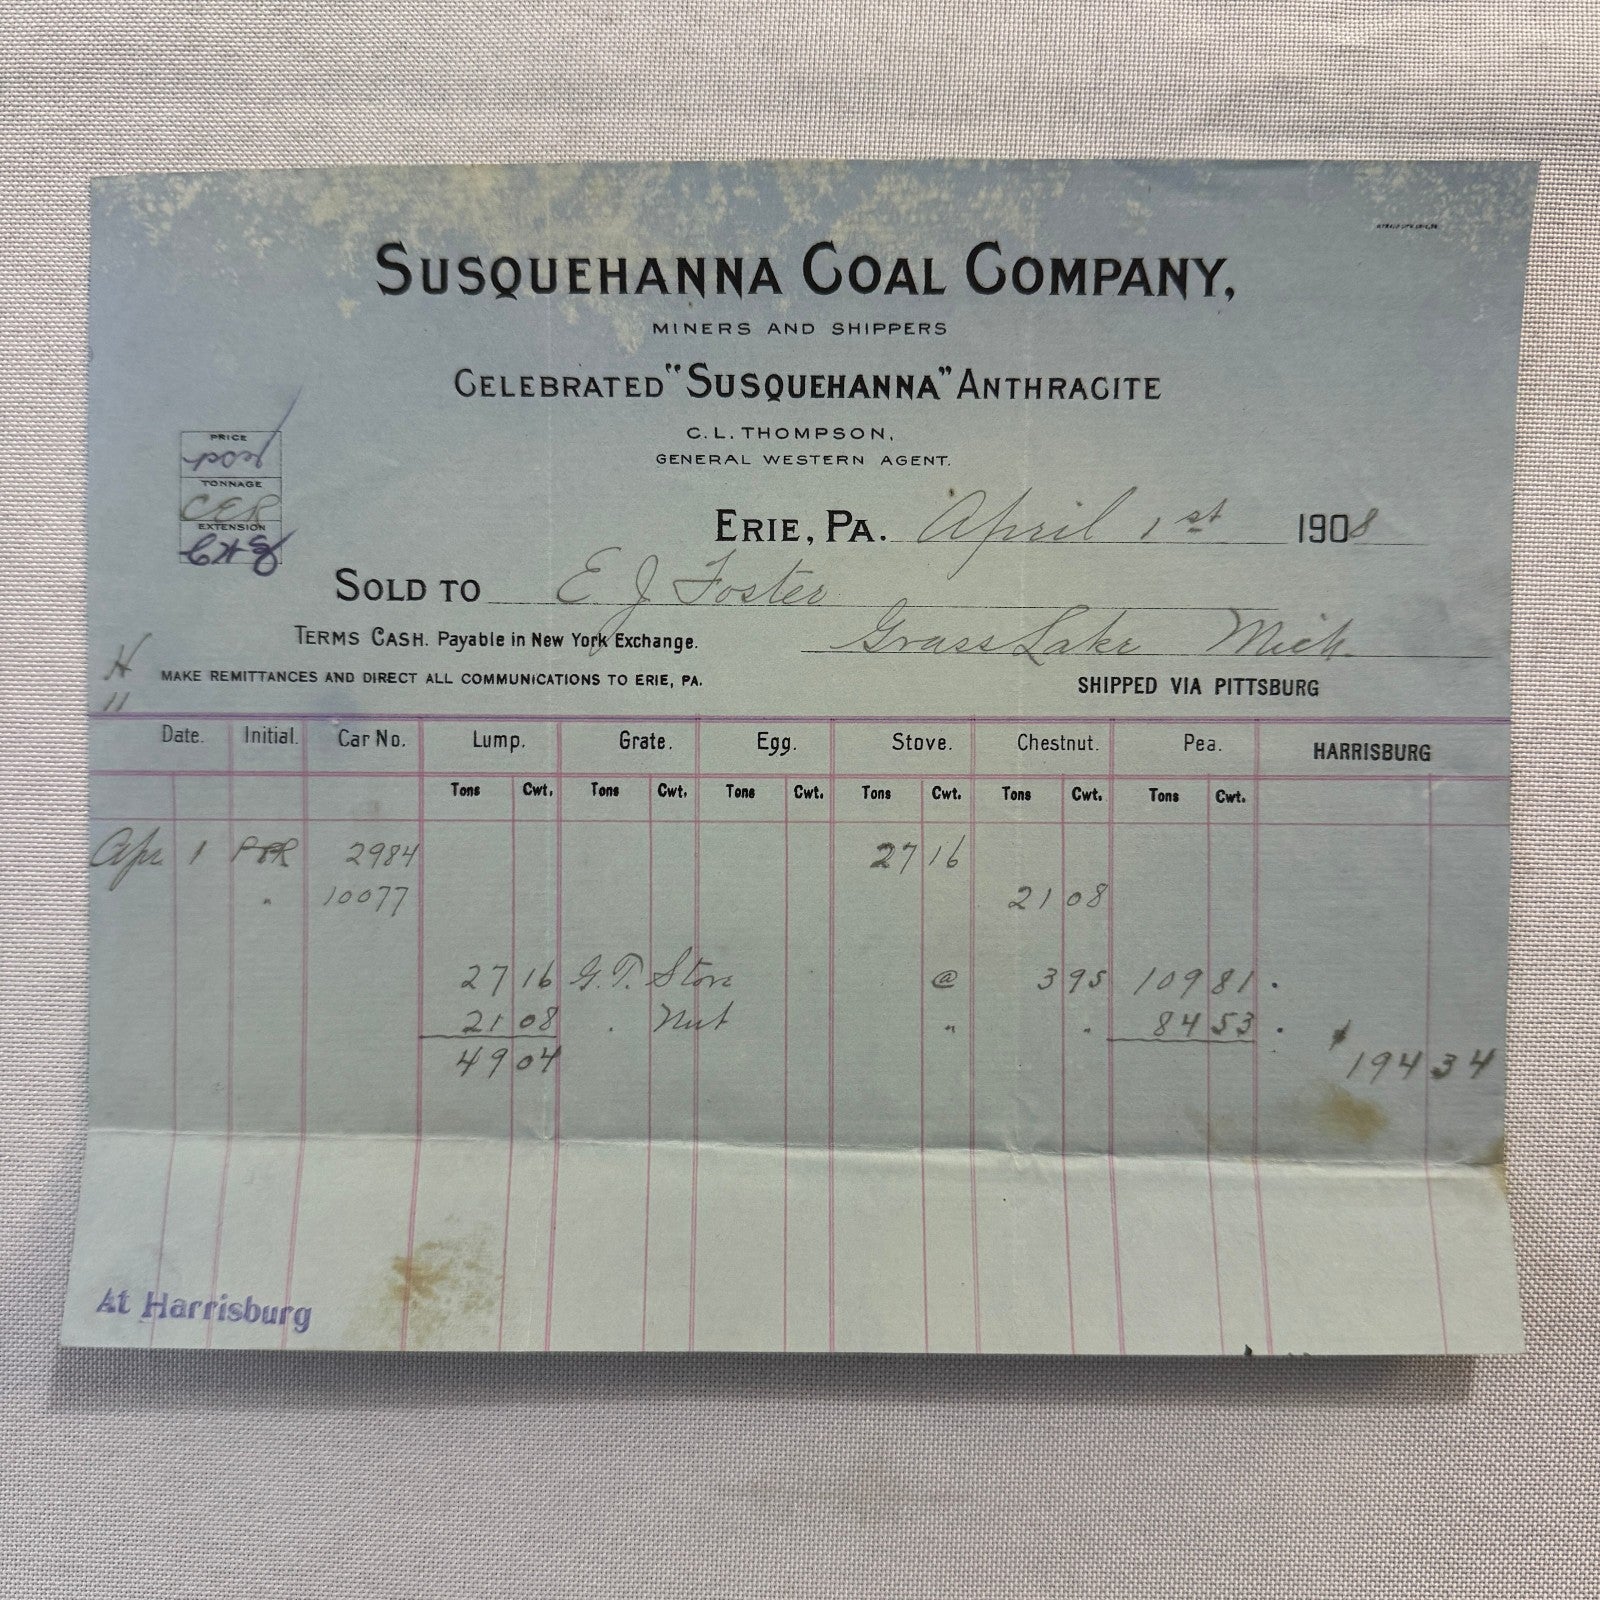 SUSQUEHANNA COAL COMPANY,
MINERS AND SHIPPERS
CELEBRATED "SUSQUEHANNA" ANTHRACITE
C. L. THOMPSON,
GENERAL WESTERN AGENT.
PRICE
TONNAGE
CER
EXTENSION
ERIE, PA. April 1st 1908
SOLD TO E. J. Foster
TERMS CASH. Payable in New York Exchange. Grass Lake Mich.
H
MAKE REMITTANCES AND DIRECT ALL COMMUNICATIONS TO ERIE, PA. SHIPPED VIA PITTSBURG
11
Date. Initial. Car No. Lump. Grate. Egg. Stove. Chestnut. Pea. HARRISBURG
Tons Cwt. Tons Cwt. Tons Cwt. Tons Cwt. Tons Cwt. Tons Cwt.
Apr 1 PRR 2984 27 16
" 10077 21 08
27 16 G.T. Stove @ 3 95 109 81.
21 08 . Nut " " 84 53.
49 04 $194 34
At Harrisburg